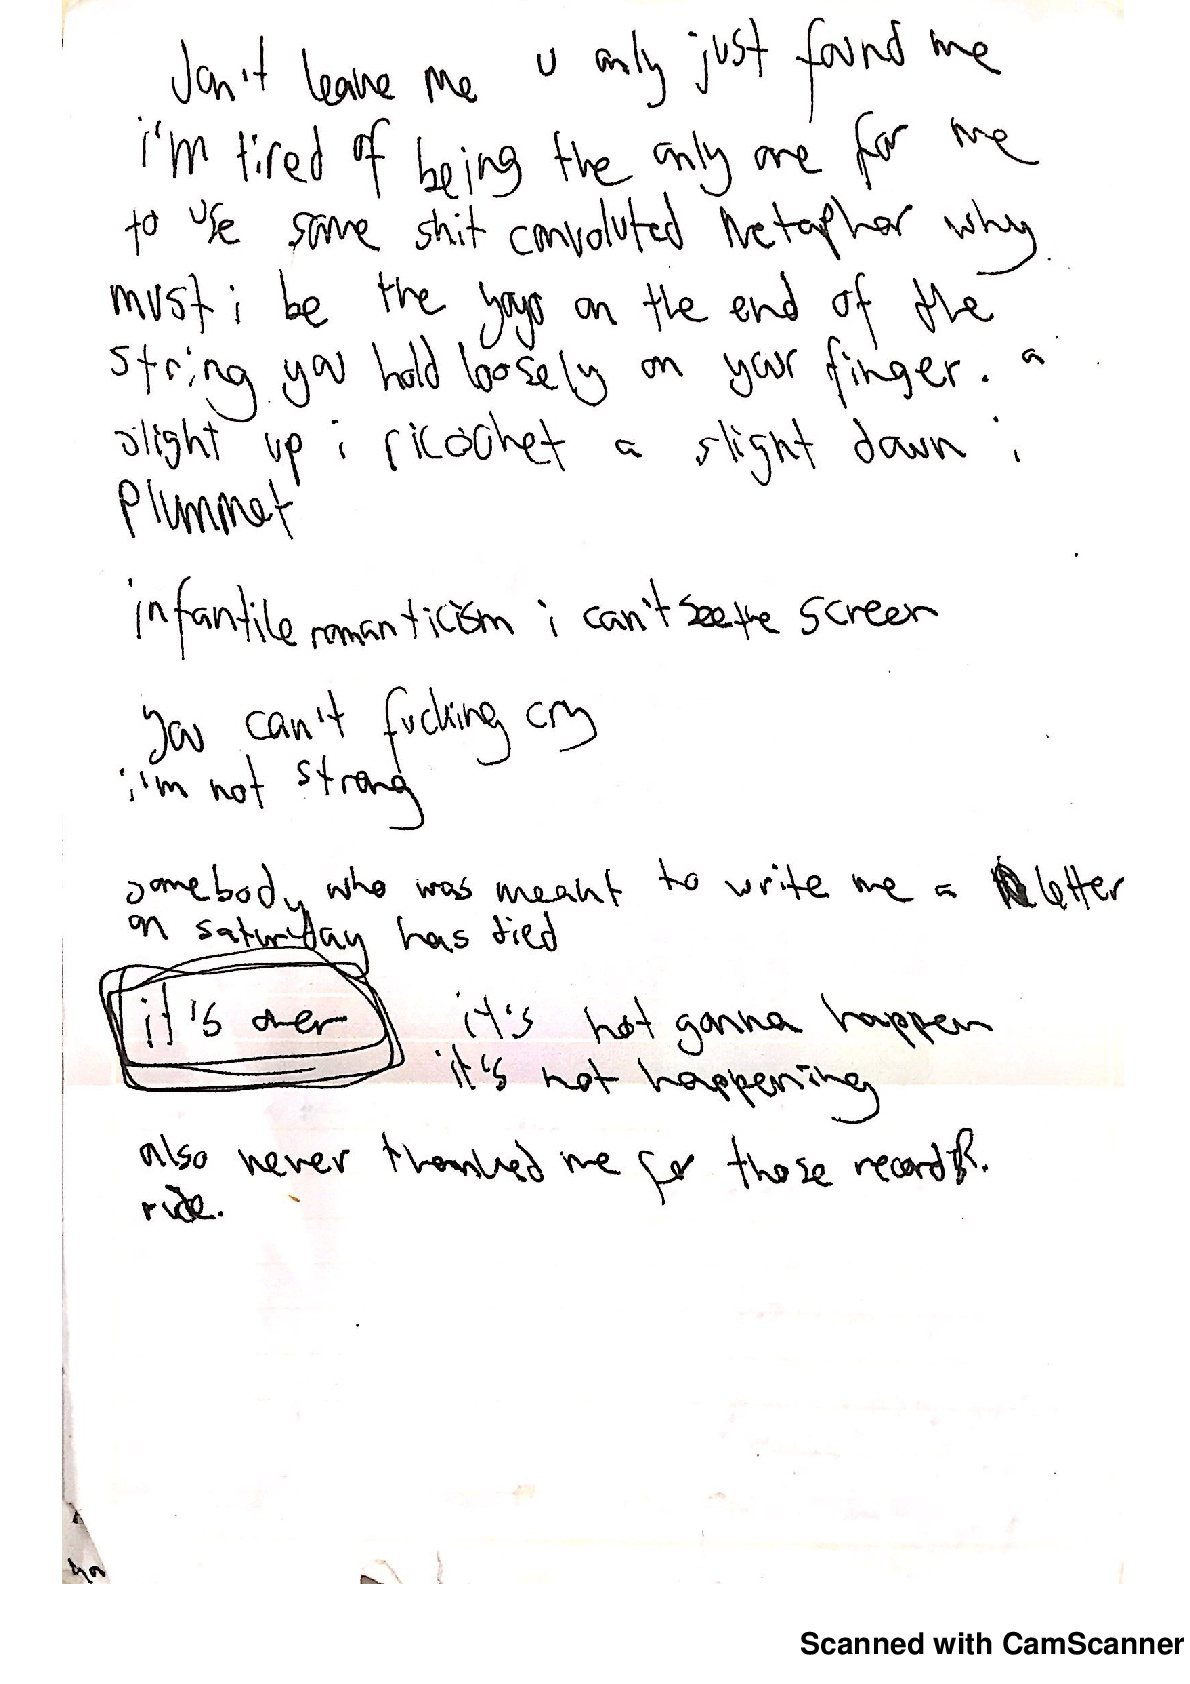 don't leave me u only just found me
i'm tired of being the only one for me
to use some shit convoluted metaphor why
must i be the yoyo on the end of the
string you hold loosely on your finger. a
slight up i ricochet a slight down i
plummet
infantile romanticism i can't see the screen
you can't fucking cry
i'm not strong
somebody who was meant to write me a letter
on saturday has died
it's over it's not gonna happen
it's not happening
also never thanked me for those records.
rude.
Scanned with CamScanner